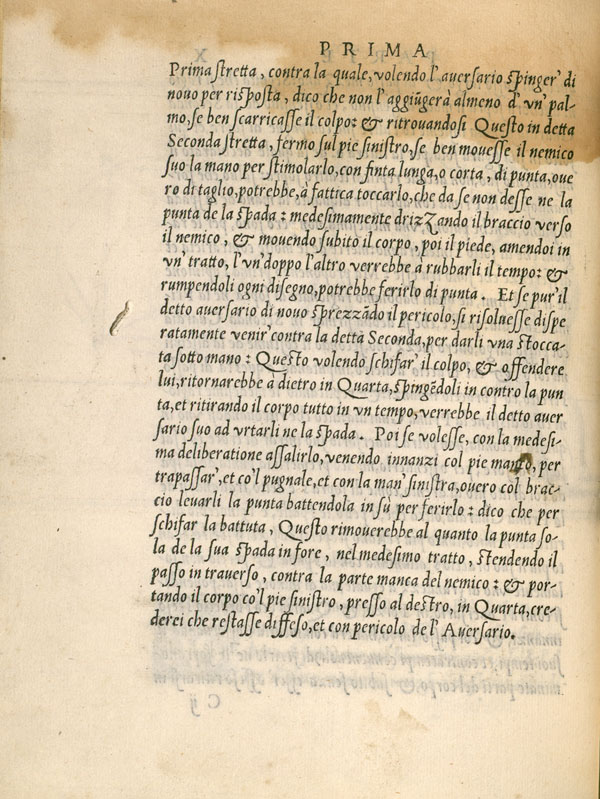 PRIMA
Prima stretta, contra la quale, volendo l'aversario spinger' di
novo per risposta, dico che non l'aggiūgerà almeno d'vn' pal-
mo, se ben scarricasse il colpo: & ritrovandosi Questo in detta
Seconda stretta, fermo sul pie sinistro, se ben movesse il nemico
suo la mano per stimolarlo, con finta lunga, o corta, di punta, oue
ro di taglio, potrebbe, à fattica toccarlo, che da se non desse ne la
punta de la spada: medesimamente drizzando il braccio verso
il nemico, & mouendo subito il corpo, poi il piede, amendoi in
vn' tratto, l'vn' doppo l'altro verrebbe à rubbarli il tempo: &
rumpendoli ogni disegno, potrebbe ferirlo di punta. Et se pur'il
detto aversario di nouo sprezzādo il pericolo, si risoluesse dispe
ratamente venir' contra la detta Seconda, per darli vna stocca-
ta sotto mano: Questo volendo schifar' il colpo, & offendere
lui, ritornarebbe à dietro in Quarta, spingēdoli in contro la pun
ta, et ritirando il corpo tutto in vn tempo, verrebbe il detto auer
sario suo ad vrtarli ne la spada. Poi se volesse, con la medesi-
ma deliberatione assalirlo, venendo innanzi col pie manco, per
trapassar', et co'l pugnale, et con la man' sinistra, ouero col brac-
cio leuarli la punta battendola in sù per ferirlo: dico che per
schifar la battuta, Questo rimouerebbe al quanto la punta so-
la de la sua spada in fore, nel medesimo tratto, stendendo il
passo in trauerso, contra la parte manca del nemico: & por-
tando il corpo co'l pie sinistro, presso al destro, in Quarta, cre-
derei che restasse diffeso, et con pericolo de l'Auersario.